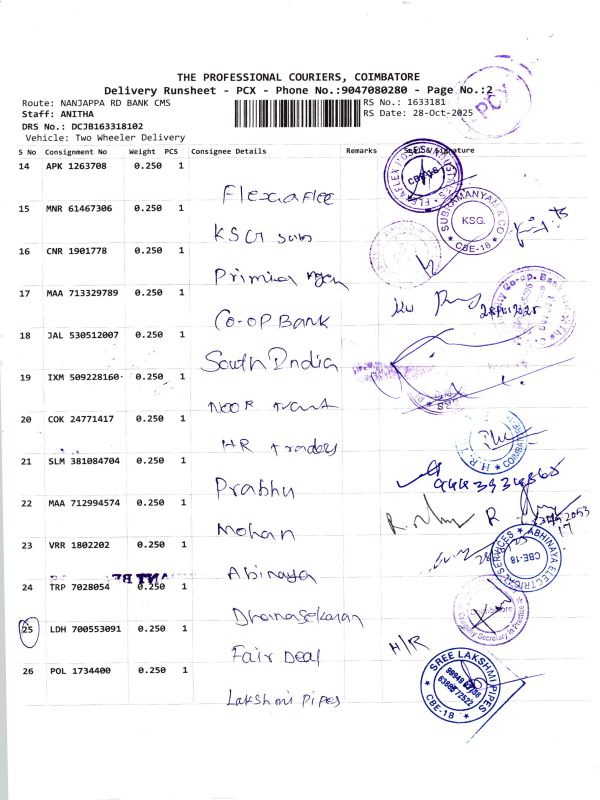 THE PROFESSIONAL COURIERS, COIMBATORE
Delivery Runsheet - PCX - Phone No.:9047080280 - Page No.:2
Route: NANJAPPA RD BANK CMS
RS No.: 1633181
Staff: ANITHA
RS Date: 28-Oct-2025
DRS No.: DCJB163318102
Vehicle: Two Wheeler Delivery
PCX
S No Consignment No Weight PCS Consignee Details Remarks Seal & Signature
14 APK 1263708 0.250 1
Flexaflex
CBE-18
15 MNR 61467306 0.250 1
KSG Subs
SUBRAMANYAM & CO
KSG.
CBE-18
16 CNR 1901778 0.250 1
17 MAA 713329789 0.250 1
Co-op Bank
18 JAL 530512007 0.250 1
South India
19 IXM 509228160 0.250 1
Noor
20 COK 24771417 0.250 1
HR traders
21 SLM 381084704 0.250 1
Prabhu
22 MAA 712994574 0.250 1
Mohan
23 VRR 1802202 0.250 1
Abinaya
ABHINAYA ELECTRICAL SERVICES
CBE-18
24 TRP 7028054 0.250 1
Dhanasekaran
Company Secretary in Practice
25 LDH 700553091 0.250 1
Fair Deal
H/R
26 POL 1734400 0.250 1
Lakshmi Pipes
SREE LAKSHMI PIPES
CBE-18